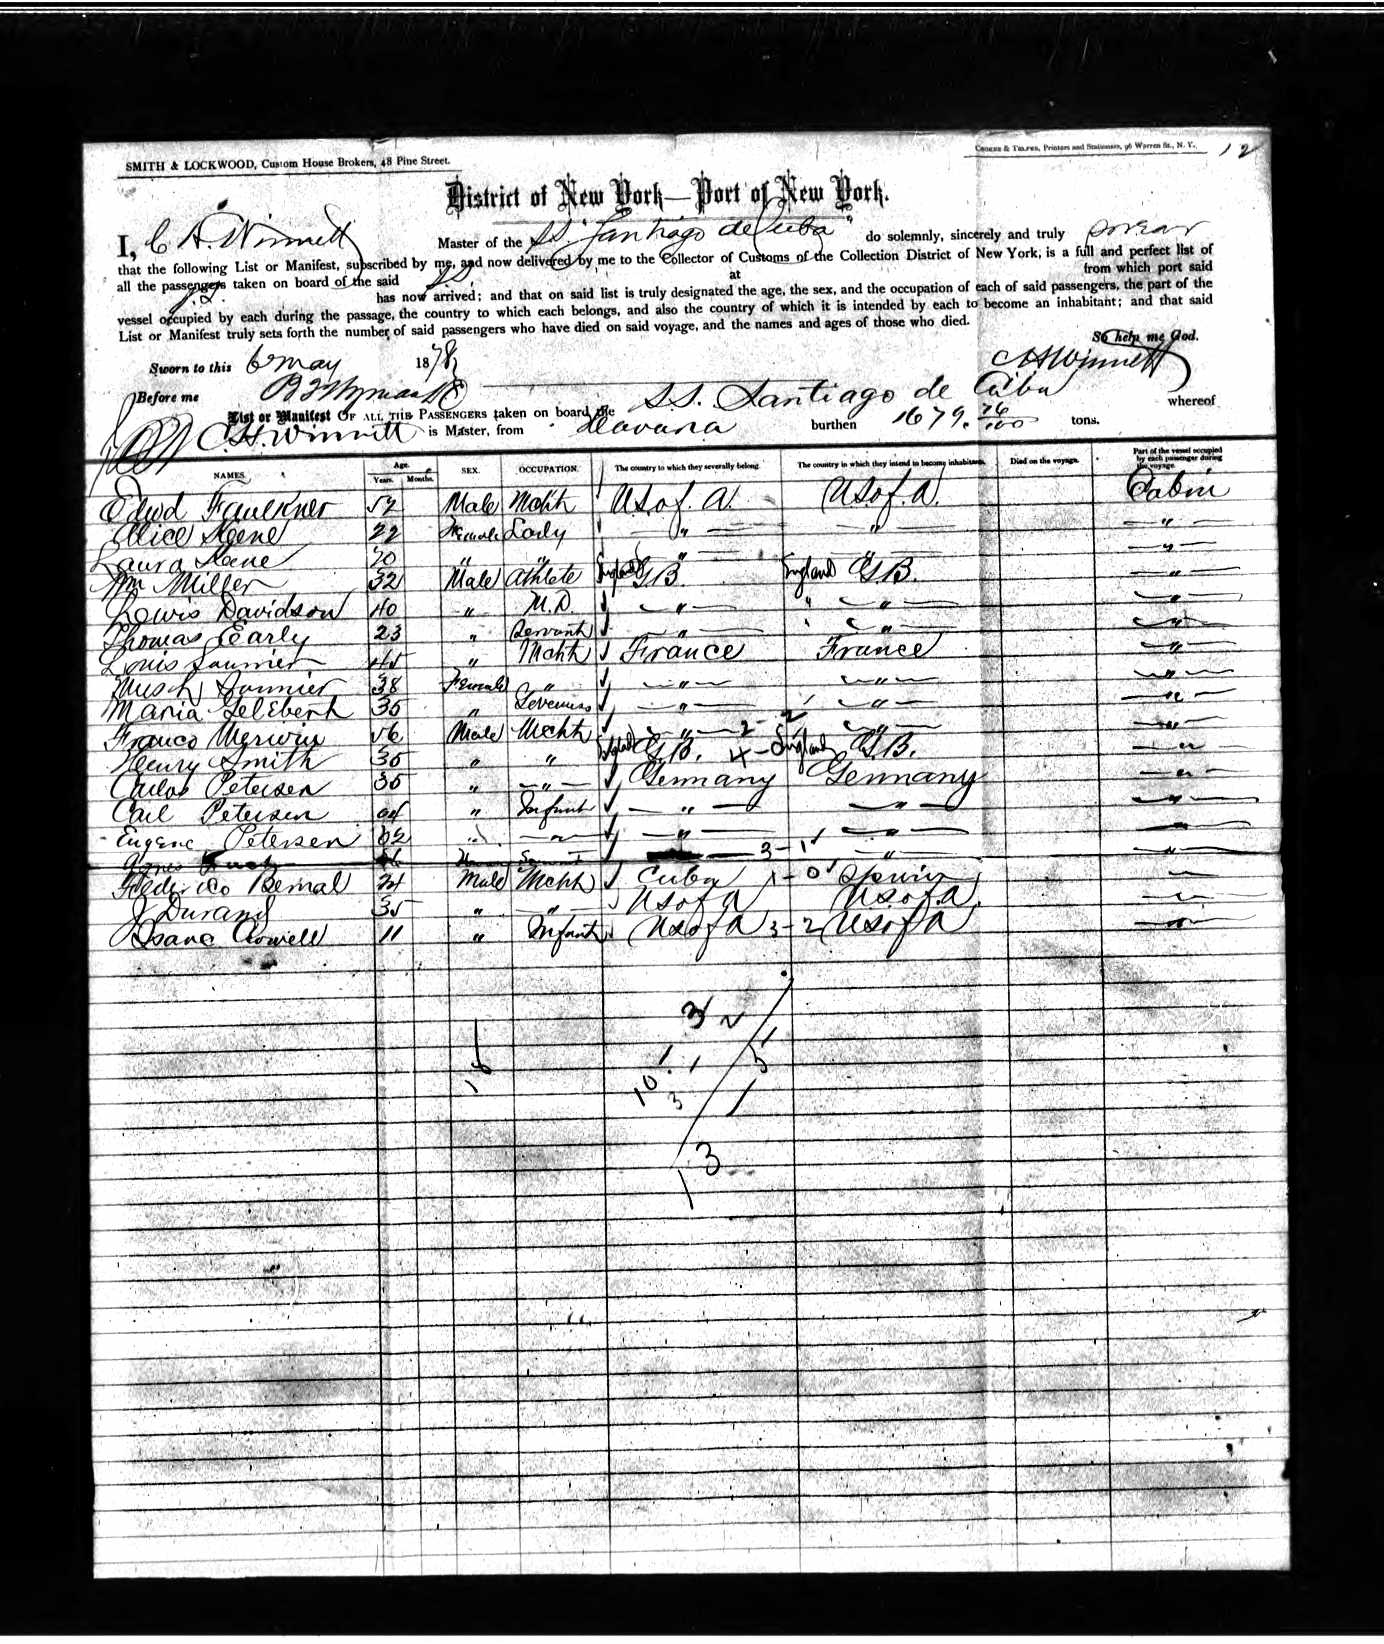 SMITH & LOCKWOOD, Custom House Brokers, 48 Pine Street.
Printers and Stationers, 96 Warren St., N. Y.
12
District of New York—Port of New York.
I, C H Winnett Master of the SS "Santiago de Cuba" do solemnly, sincerely and truly swear
that the following List or Manifest, subscribed by me, and now delivered by me to the Collector of Customs of the Collection District of New York, is a full and perfect list of
all the passengers taken on board of the said SS. at from which port said
S.S. has now arrived; and that on said list is truly designated the age, the sex, and the occupation of each of said passengers, the part of the
vessel occupied by each during the passage, the country to which each belongs, and also the country of which it is intended by each to become an inhabitant; and that said
List or Manifest truly sets forth the number of said passengers who have died on said voyage, and the names and ages of those who died.
So help me God.
Sworn to this 6 may 1878 CH Winnett
Before me
List or Manifest OF ALL THE PASSENGERS taken on board the S.S. Santiago de Cuba whereof
C.H. Winnett is Master, from Havana burthen 1679. 76/100 tons.
NAMES. Age. Years. Months. SEX. OCCUPATION. The country to which they severally belong. The country in which they intend to become inhabitants. Died on the voyage. Part of the vessel occupied by each passenger during the voyage.
Edwd Faulkner 52 Male Mcht U.S. of. A. U.S. of. A. Cabin
Alice Keene 22 Female Lady " " "
Laura Keene 20 " " " " "
Wm Miller 32 Male Athlete England G.B. England G.B. "
Lewis Davidson 40 " M.D. " " "
Thomas Early 23 " Servant " " "
Louis Saunier 45 " Mcht France France "
Saunier 38 Female " " " "
Maria 35 " " " "
Franco Merwin 56 Male Mcht " 2-2 " "
Henry Smith 35 " " England G.B. 4- England G.B. "
Carlos Petersen 35 " " Germany Germany "
Carl Petersen 04 " Infant " " "
Eugene Petersen 02 " " " " "
3-1 "
Federico Bernal 24 Male Mcht Cuba 1-0 Spain "
J Durand 35 " " US of A US of A. "
Isaac 11 " Infant US of A 3-2 US of A "
3 2
18
10
3
1
5
1
13